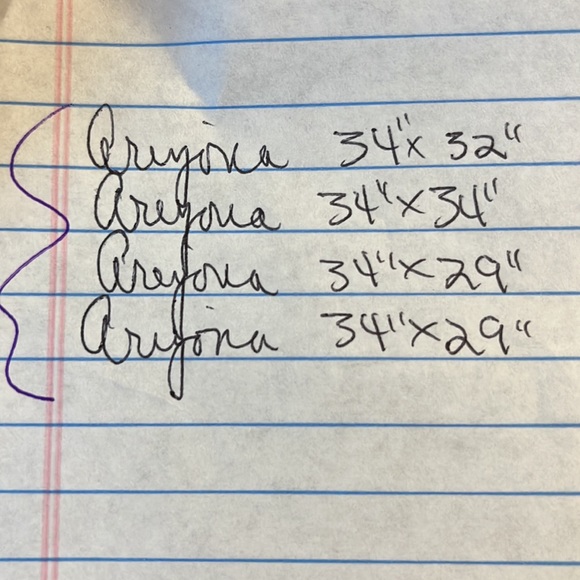 Arizona 34"x 32"
Arizona 34"x34"
Arizona 34"x29"
Arizona 34"x29"